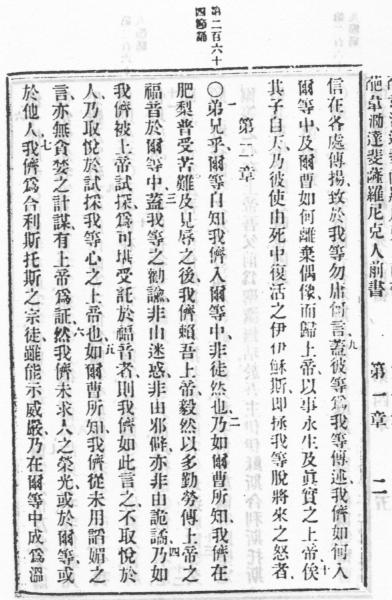 第二百六十
四俄經
葩韋泐達斐薩羅尼克人前書　第一章　二
信在各處傳揚致於我等勿庸何言蓋彼等爲我等傳述我儕如何入
爾等中及爾曹如何離棄偶像而歸上帝以事永生及眞實之上帝俟
其子自天乃彼使由死中復活之伊伊穌斯即拯我等脫將來之怒者
第二章
○弟兄乎爾等自知我儕入爾等中非徒然也乃如爾曹所知我儕在
肥梨普受苦難及見辱之後我儕賴吾上帝毅然以多勤勞傳上帝之
福音於爾等中蓋我等之勸諭非由迷惑非由邪僻亦非由詭譎乃如
我儕被上帝試探爲可堪受託於福音者則我儕如此言之不取悅於
人乃取悅於試探我等心之上帝也如爾曹所知我儕從未用諂媚之
言亦無貪婪之計謀有上帝爲証然我儕未求人之榮光或於爾等或
於他人我儕爲合利斯托斯之宗徒雖能示威嚴乃在爾等中成爲溫